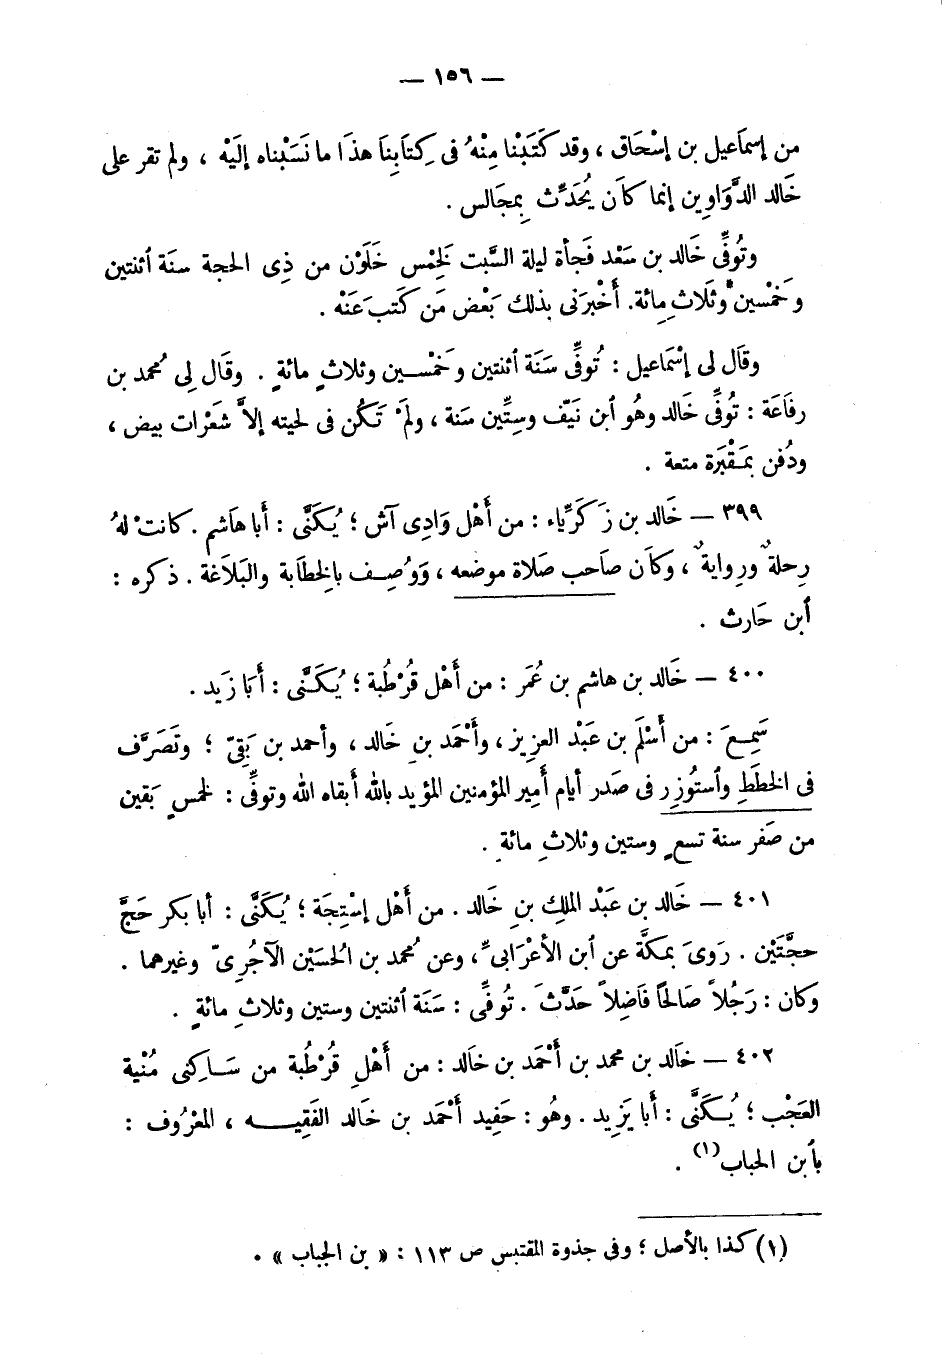 — ١٥٦ —
من إسماعيل بن إسْحَاق ، وقد كَتَبْنا مِنْهُ فى كِتَابِنَا هذَا ما نَسَبْناه إلَيْه ، ولم تقر على
خَالد الدَّوَاوِين إنما كاَن يُحَدِّث بِمجَالس .
وتُوفِّى خَالد بن سَعْد فَجأة ليلة السَّبت لَخِمْس خَلَوْن من ذِى الحجة سنَة أثنتين
وخَمْسين وثَلَاثِ مِائة. أَخْبرَنى بذلك بَعْض مَن كَتبَ عَنْه .
وقَال لى إسْمَاعيل : تُوفِّى سَنَة أثنتين وخَمْسـين وثلاثِ مائةٍ . وقَال لِى مُحمد بن
رفَاعَة : تُوفِّى خَالد وهُو أبن نَيّف وسِتِّين سَنة ، ولَمَْ تَكُن فى لحيته إلاَّ شَعْرات بيض ،
ودُفن بمَـقْبَرة متعة .
٣٩٩ — خَالد بن زَكَرِيَّاء : من أَهْل وَادِى آش ؛ يُكَنَّى : أَبا هَاشم . كانتْ لهُ
رِحلةٌ ورِوايةٌ ، وكاَن صَاحب صَلاة موضعه ، وَوُصِـف بالخِطَابة والبَلَاغة . ذكره :
أبن حَارث .
٤٠٠ — خَالد بن هاشم بن عُمَر : من أَهْل قُرْطُبة ؛ يُـكَـنَّى : أَبَا زَيد .
سَمِـعَ : من أَسْلَم بن عَبْد العزيز ، وأَحْمَد بنِ خَالد ، وأحمد بن بَقِىّ ؛ وتَصَرَّف
فى الخطَطِ وأستُوزِر فى صَدر أيام أَمِير المؤمنين المؤيد بالله أَبقاه الله وتوفِّى : لخمسٍ بَقين
من صَفر سنة تسعٍ وستين وثلاثِ مائةٍ .
٤٠١ — خَالد بن عَبْد الملكِ بنِ خَالد . من أَهْل إسْتِجَة ؛ يُكَنَّى : أبا بكر حَجَّ
حجَّتَيْن . رَوىَ بمكَّة عن أبن الأعْرَابىِّ ، وعن مُحمد بن الحسَيْن الآجُرِىّ وغيرهما .
وَكان : رَجُلاً صَالحاً فَاضِلاً حَدَّثَ . تُوفِّى : سَنَة أثنتين وستين وثلاثِ مائةٍ .
٤٠٢ — خاَلد بن محمد بن أَحْمَد بن خاَلد : من أَهْلِ قُرْطُبة من سَـاكِنى مُنْية
العَجْب ؛ يُـكَنَّى : أَبا يَزِيد . وهُو : حَفِيد أَحْمَد بن خَالد الفَقِيـــه ، المعْرُوف :
بأبن الحباب(١) .
(١) كذا بالأصل ؛ وفى جذوة المقتبس ص ١١٣ : « بن الجباب » .